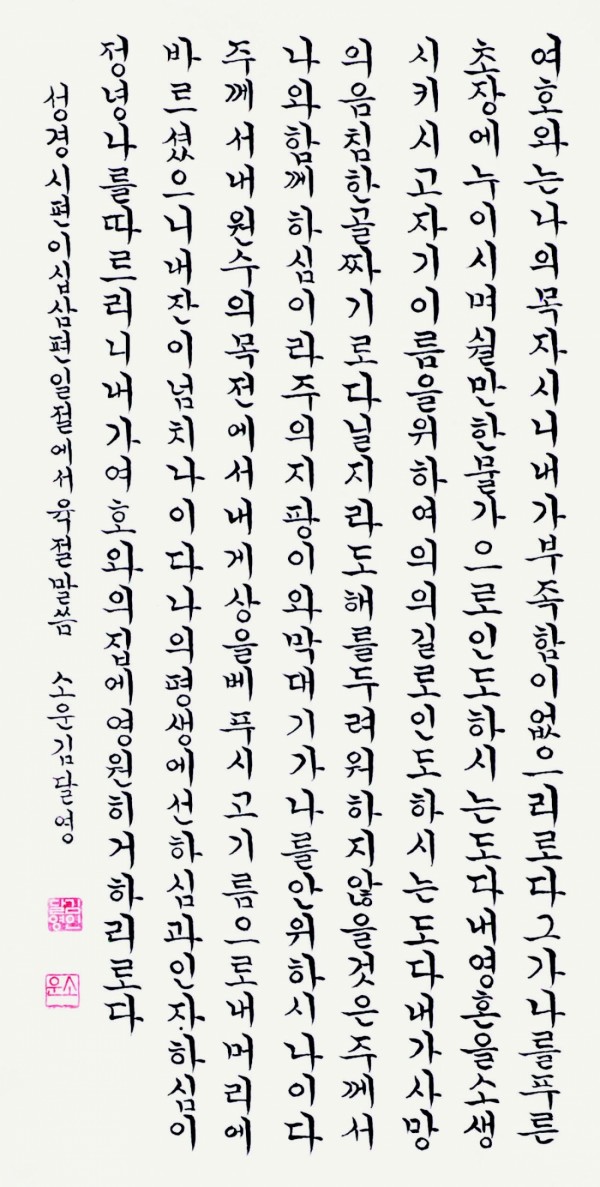 여호와는나의목자시니내가부족함이없으리로다그가나를푸른
초장에누이시며쉴만한물가으로인도하시는도다내영혼을소생
시키시고자기이름을위하여의의길로인도하시는도다내가사망
의음침한골짜기로다닐지라도해를두려워하지않을것은주께서
나와함께하심이라주의지팡이와막대기가나를안위하시나이다
주께서내원수의목전에서내게상을베푸시고기름으로내머리에
바르셨으니내잔이넘치나이다나의평생에선하심과인자하심이
정녕나를따르리니내가여호와의집에영원히거하리로다
성경시편이십삼편일절에서육절말씀 소운김달영
김인달영
소운